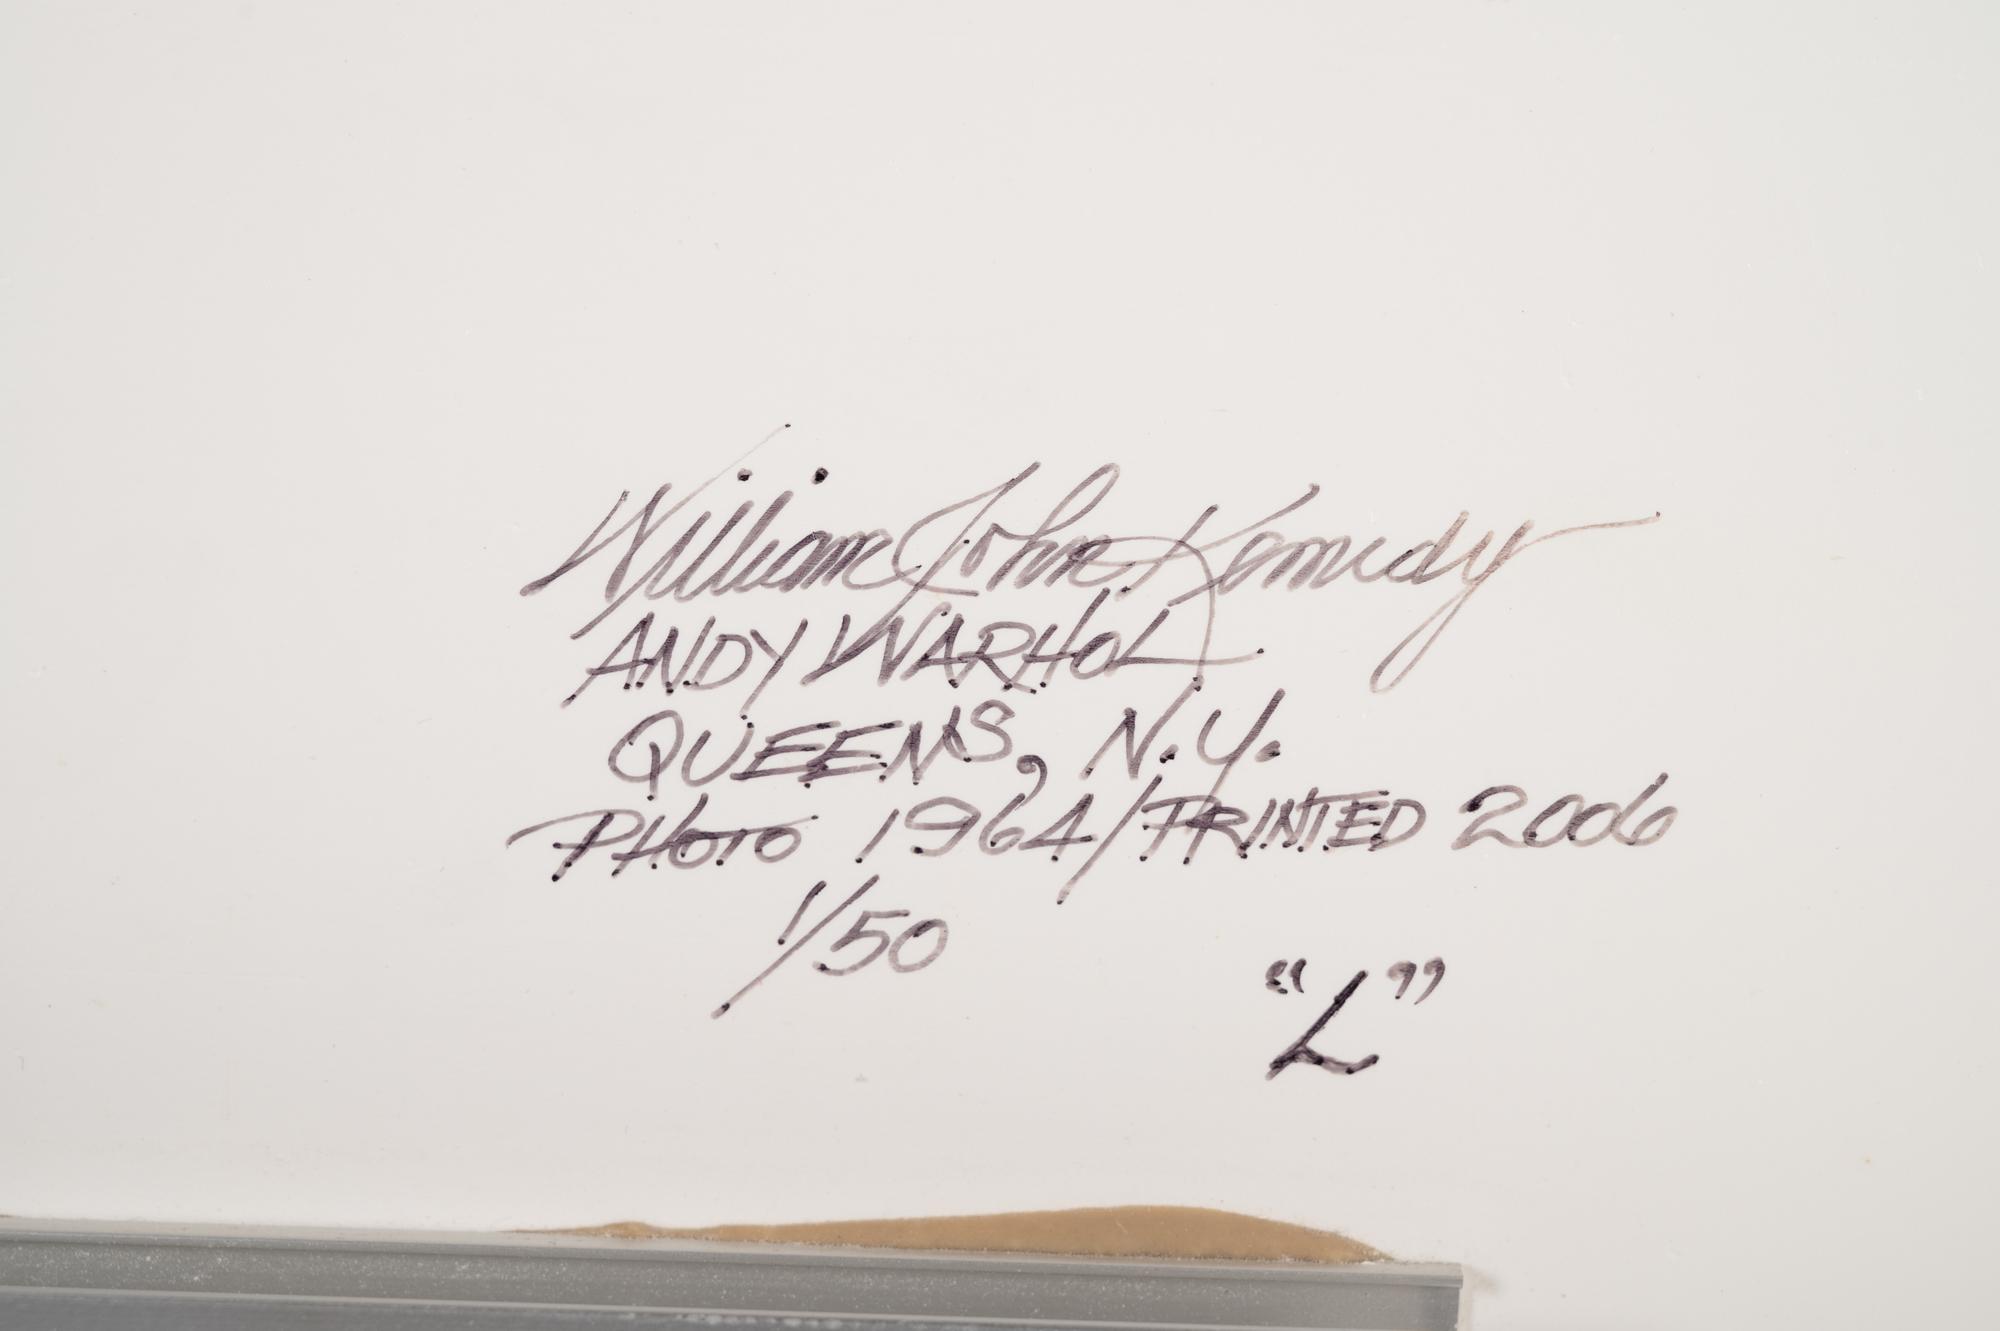 William John Kennedy
ANDY WARHOL
QUEENS, N.Y.
PHOTO 1964/PRINTED 2006
1/50
"L"